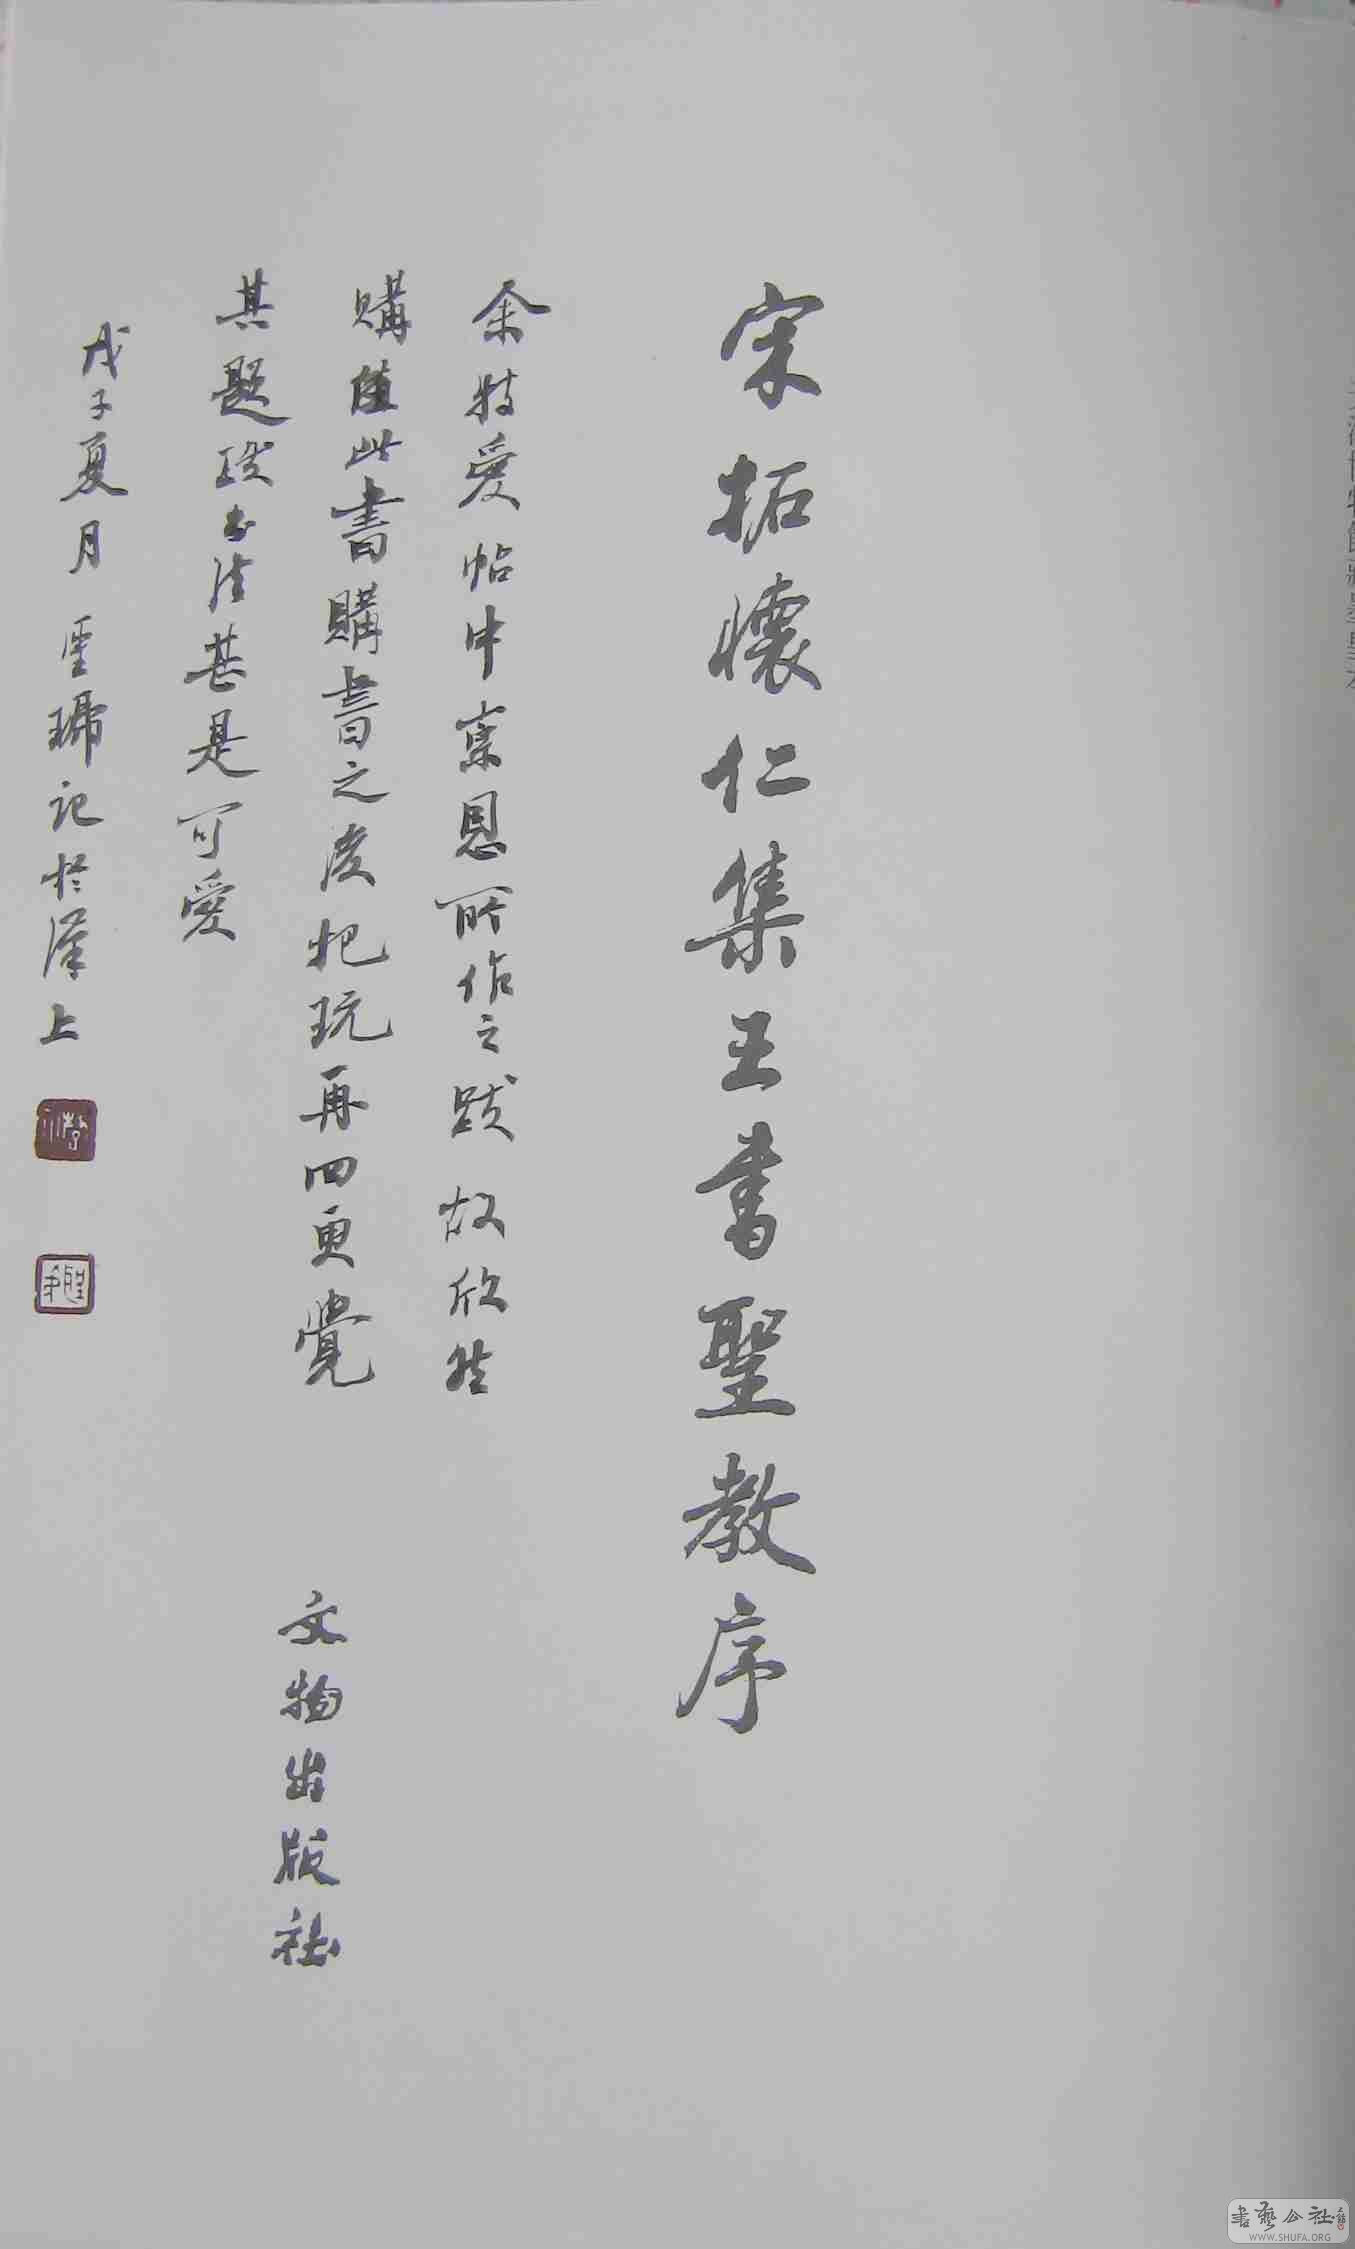 天津博物館藏墨皇本
宋拓懷仁集王書聖教序
余特愛帖中崇恩所作之跋故欣然
購值此書購書之後把玩再四更覺
其題跋书法甚是可愛
戊子夏月記於漢上
文物出版社
書藝公社
WWW.SHUFA.ORG